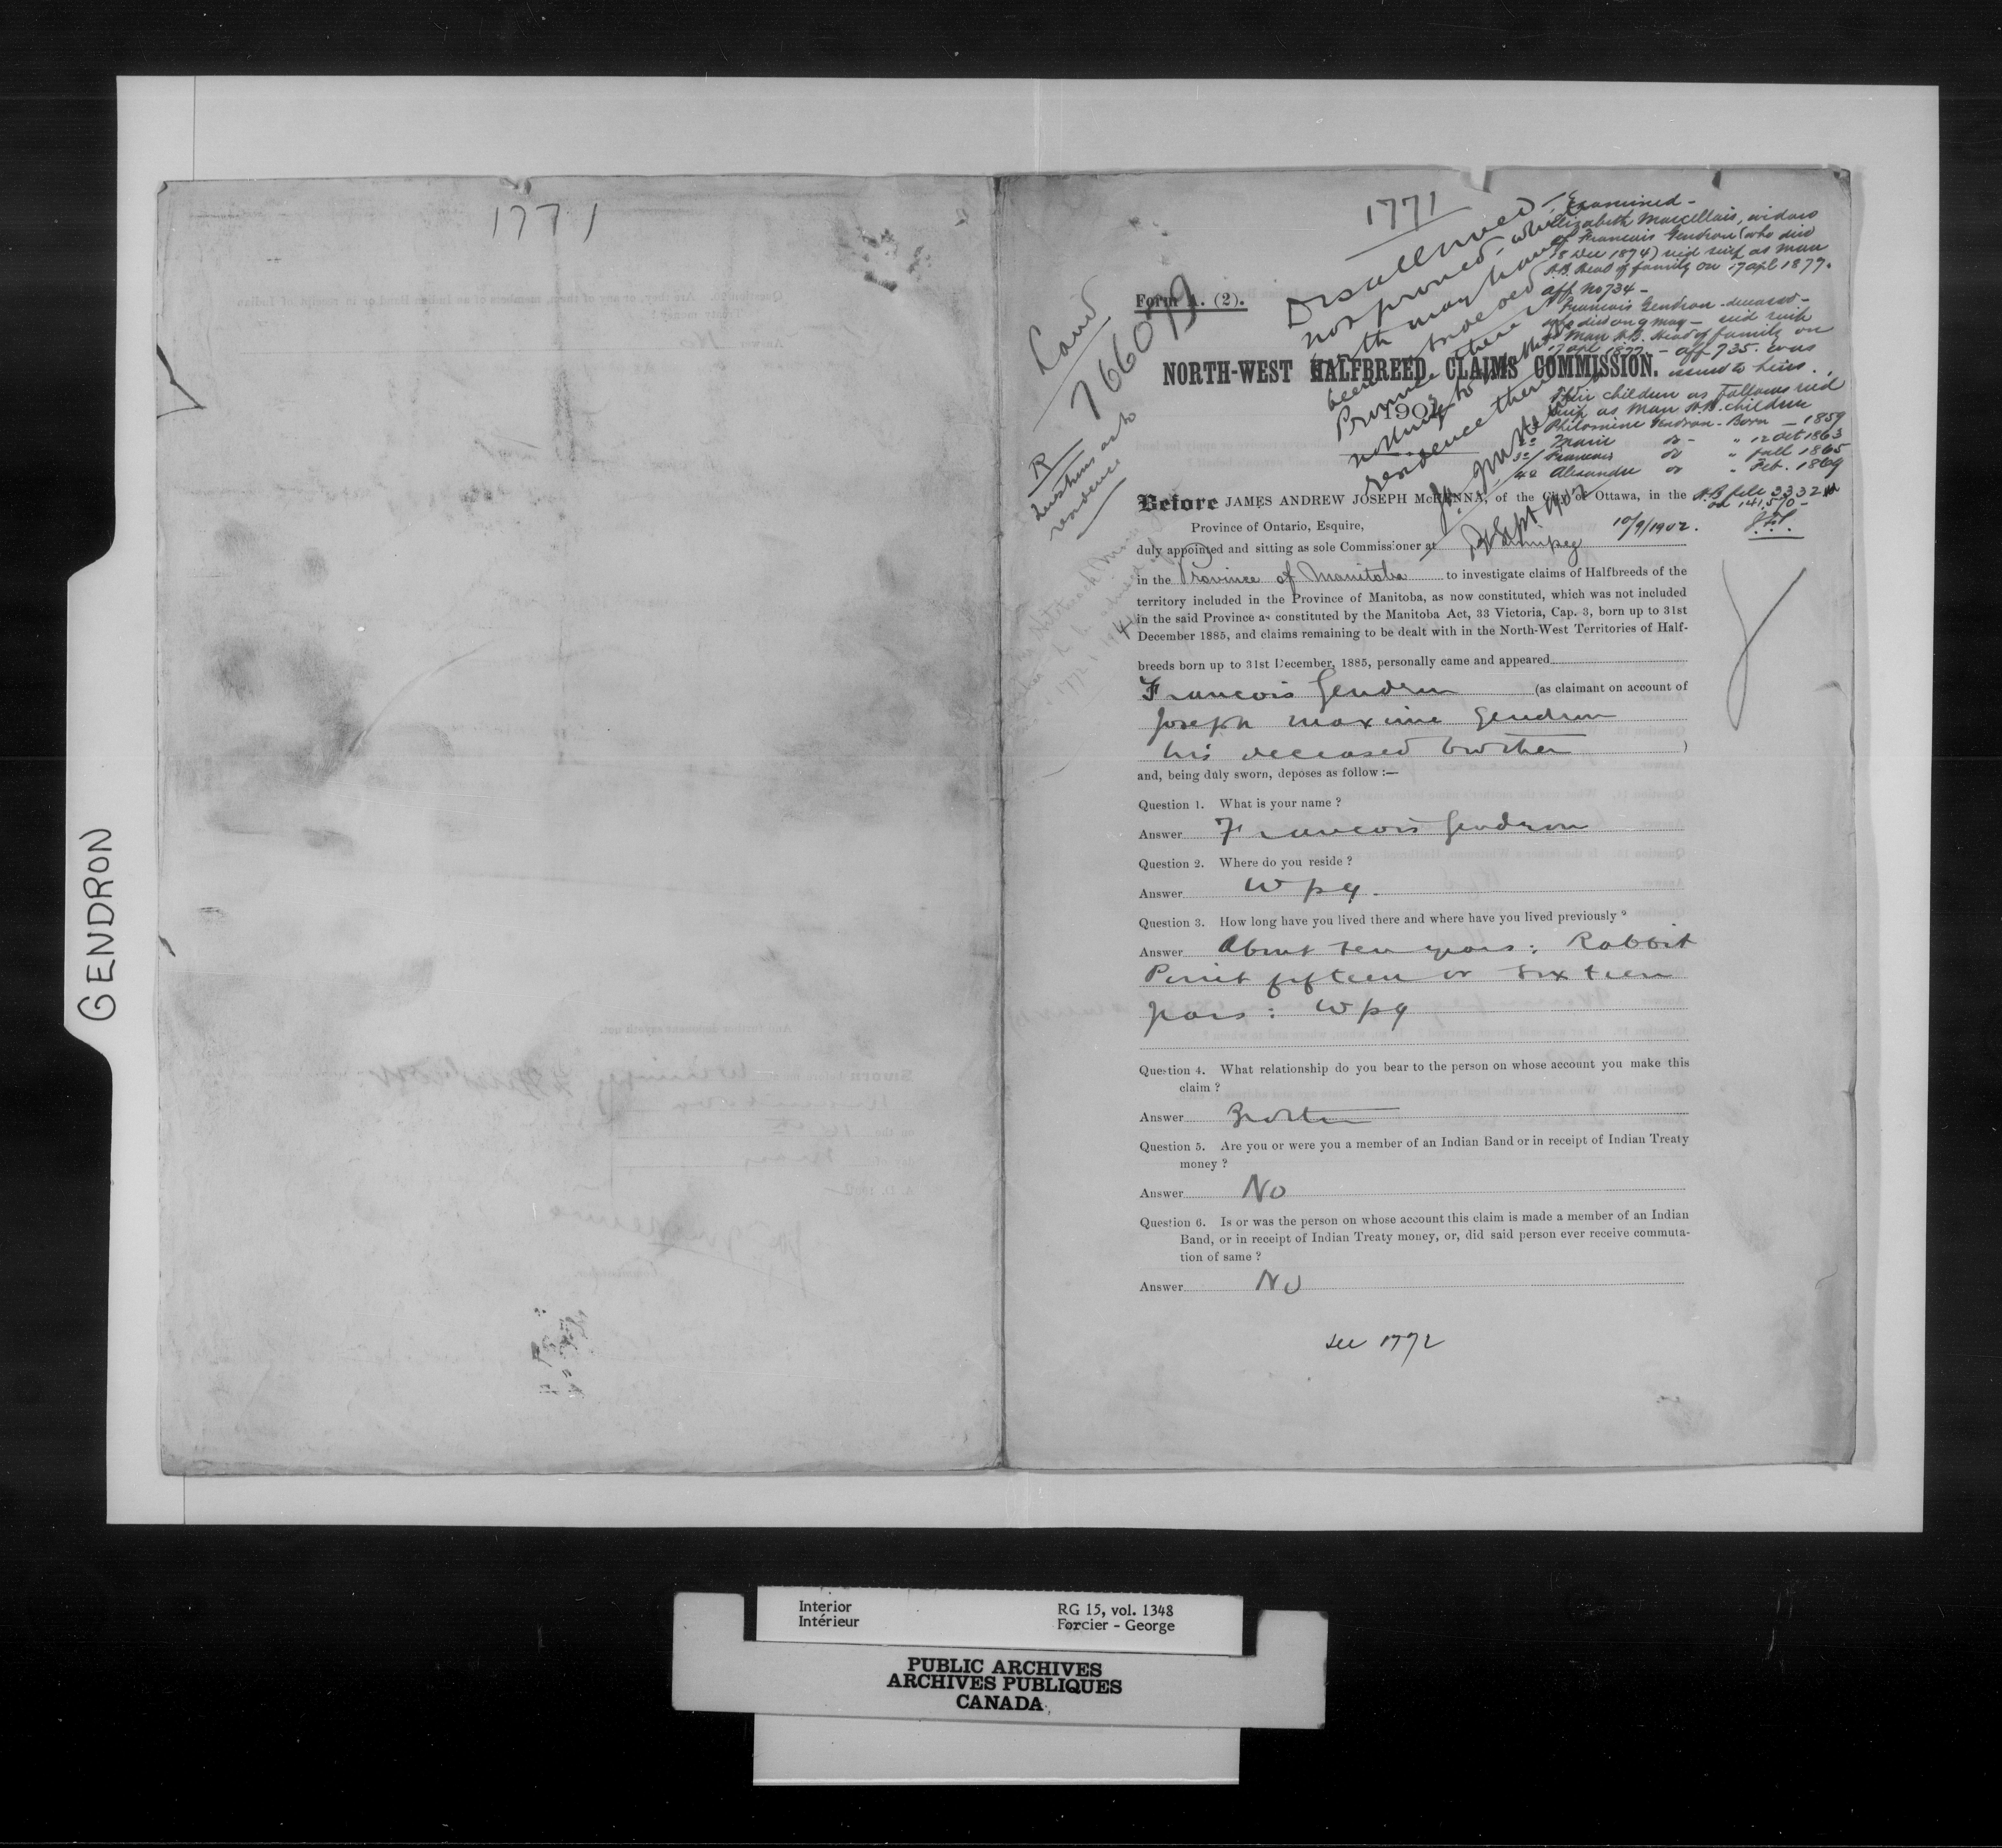 1771
GENDRON
1771
Form A. (2).
Land
766073
R
Questions as to
residence
Disallowed
not proved
Examined -
Elizabeth Marcellais, widow
of Francois Gendron (who died
8 Dec 1874) recd scrip as Man
H.B. Head of family on 17 apl 1877.
aff No 734 -
Francois Gendron deceased -
who died on 9 may - recd scrip
as Man H.B. Head of family on
17 apl 1877 - aff 735. was
issued to heirs.
Their children as follows recd
scrip as Man H.B. children
Philomine Gendron - Born - 1859
2° Marie do - " 12 Oct 1863
3°/ Francois do " fall 1865
4° Alexandre do " Feb. 1869
H.B file 3332
on 141.570 -
10/9/1902.
NORTH-WEST HALFBREED CLAIMS COMMISSION.
190
residence there
Sept 1902
Before JAMES ANDREW JOSEPH McKENNA, of the City of Ottawa, in the
Province of Ontario, Esquire,
duly appointed and sitting as sole Commissioner at Winnipeg
in the Province of Manitoba to investigate claims of Halfbreeds of the
territory included in the Province of Manitoba, as now constituted, which was not included
in the said Province as constituted by the Manitoba Act, 33 Victoria, Cap. 3, born up to 31st
December 1885, and claims remaining to be dealt with in the North-West Territories of Half-
breeds born up to 31st December, 1885, personally came and appeared
Francois Gendron (as claimant on account of
Joseph Maxime Gendron
his deceased brother )
and, being duly sworn, deposes as follow :—
Question 1. What is your name ?
Answer Francois Gendron
Question 2. Where do you reside ?
Answer Wpg.
Question 3. How long have you lived there and where have you lived previously ?
Answer About ten years: Rabbit
Point fifteen or sixteen
years: Wpg
Question 4. What relationship do you bear to the person on whose account you make this
claim ?
Answer Brother
Question 5. Are you or were you a member of an Indian Band or in receipt of Indian Treaty
money ?
Answer No
Question 6. Is or was the person on whose account this claim is made a member of an Indian
Band, or in receipt of Indian Treaty money, or, did said person ever receive commuta-
tion of same ?
Answer No
See 1772
Interior
Intérieur
RG 15, vol. 1348
Forcier - George
PUBLIC ARCHIVES
ARCHIVES PUBLIQUES
CANADA